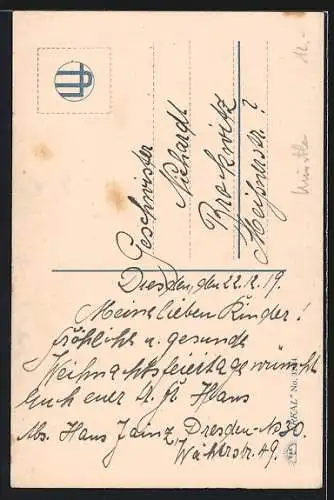 Geschwister
Niehardt
Brockwitz
Meißnerstr. ?
Künstler 12.-
Dresden, den 22.12.19.
Meine lieben Kinder!
Fröhliche u. gesunde
Weihnachtsfeiertage wünscht
Euch euer Hans
Abs. Hans Jainz, Dresden-N 30.
49.
"PEKAL" No.